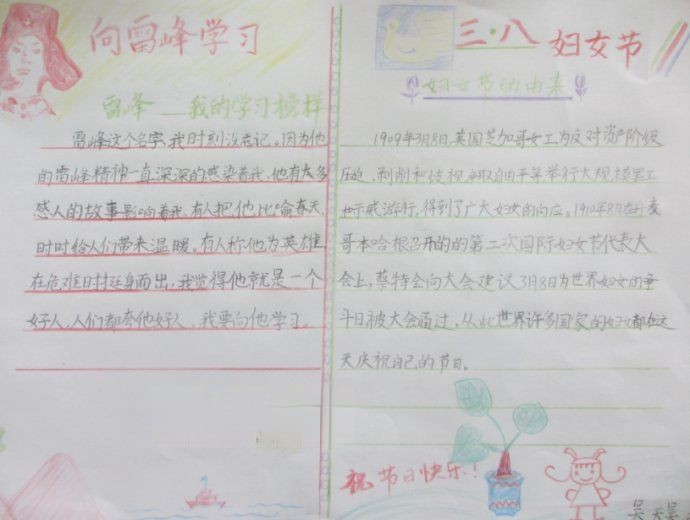 向雷峰学习
雷峰——我的学习榜样
雷峰这个名字,我时刻没忘记。因为他
的雷峰精神一直深深的感染着我,他有太多
感人的故事影响着我。有人把他比喻春天,
时时给人们带来温暖。有人称他为英雄
在危难时挺身而出,我觉得他就是一个
好人,人们都夸他好人、我要向他学习。
三·八 妇女节
妇女节的由来
1909年3月8日,美国芝加哥女工为反对资产阶级
压迫、剥削和歧视,争取自由平等举行大规模罢工
和示威游行,得到了广大妇女的向应。1910年8月在丹麦
哥本哈根召开的的第二次国际妇女节代表大
会上,蔡特会向大会建议3月8日为世界妇女的争
斗日被大会通过,从此世界许多国家的妇女都在这
天庆祝自己的节日。
祝 节日快乐!
吴天昊